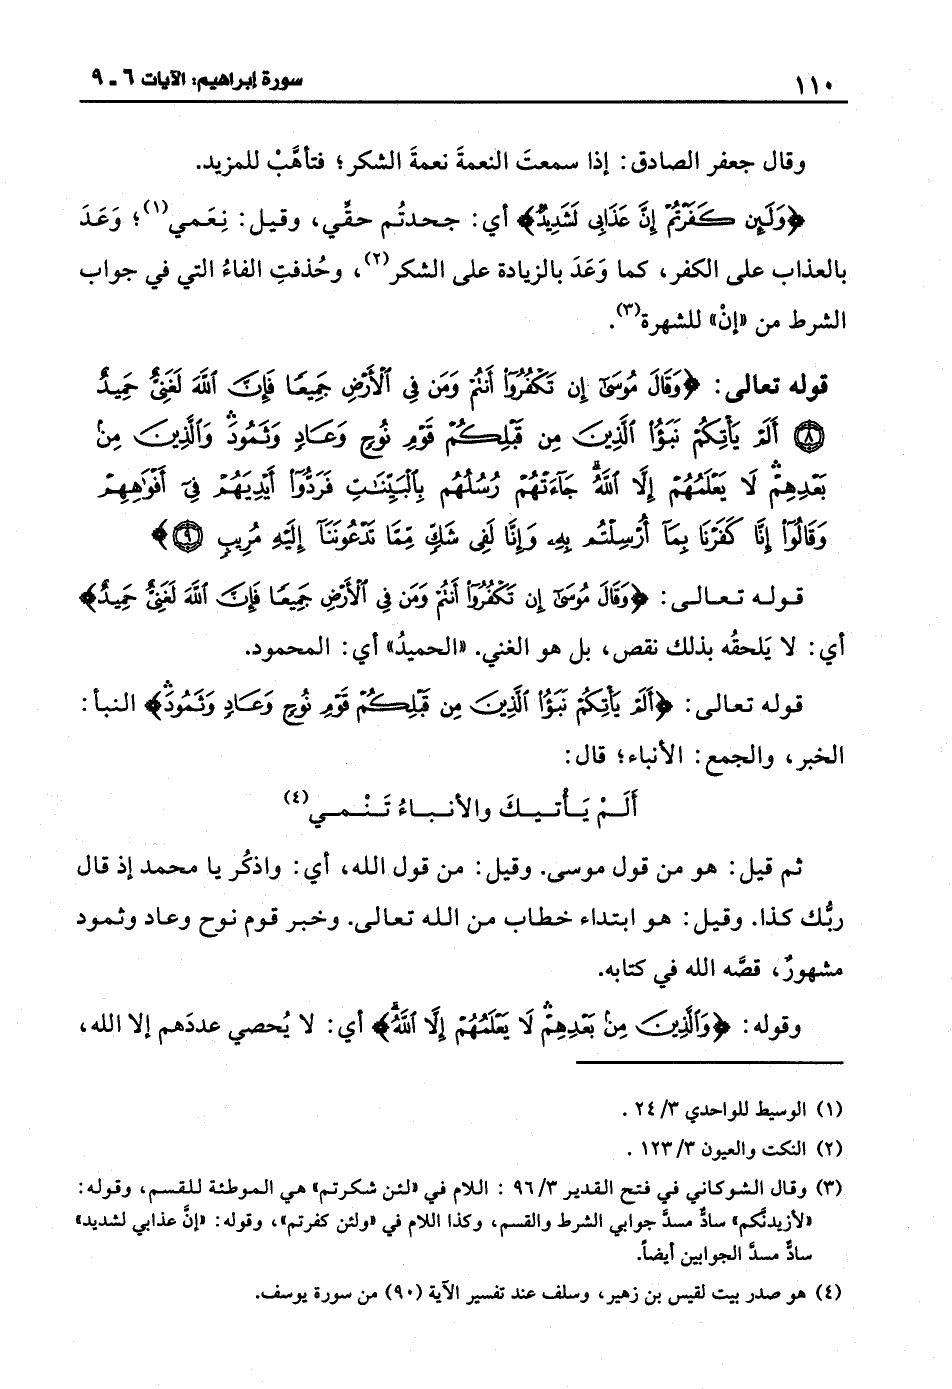 ١١٠ سورة إبراهيم: الآيات ٦ - ٩
وقال جعفر الصادق: إذا سمعتَ النعمةَ نعمةَ الشكر؛ فتأهَّبْ للمزيد.
﴿وَلَئِن كَفَرْتُمْ إِنَّ عَذَابِى لَشَدِيدٌ﴾ أي: جحدتُم حقِّي، وقيل: نِعَمي(١)؛ وَعَدَ
بالعذاب على الكفر، كما وَعَدَ بالزيادة على الشكر(٢)، وحُذفتِ الفاءُ التي في جواب
الشرط من «إنْ» للشهرة(٣).
قوله تعالى: ﴿وَقَالَ مُوسَىٰٓ إِن تَكْفُرُوٓا۟ أَنتُمْ وَمَن فِى ٱلْأَرْضِ جَمِيعًا فَإِنَّ ٱللَّهَ لَغَنِىٌّ حَمِيدٌ
٨ أَلَمْ يَأْتِكُمْ نَبَؤُا۟ ٱلَّذِينَ مِن قَبْلِكُمْ قَوْمِ نُوحٍ وَعَادٍ وَثَمُودَ ۛ وَٱلَّذِينَ مِنۢ
بَعْدِهِمْ ۛ لَا يَعْلَمُهُمْ إِلَّا ٱللَّهُ ۚ جَآءَتْهُمْ رُسُلُهُم بِٱلْبَيِّنَـٰتِ فَرَدُّوٓا۟ أَيْدِيَهُمْ فِىٓ أَفْوَٰهِهِمْ
وَقَالُوٓا۟ إِنَّا كَفَرْنَا بِمَآ أُرْسِلْتُم بِهِۦ وَإِنَّا لَفِى شَكٍّ مِّمَّا تَدْعُونَنَآ إِلَيْهِ مُرِيبٍ ٩﴾
قولـه تعـالـى: ﴿وَقَالَ مُوسَىٰٓ إِن تَكْفُرُوٓا۟ أَنتُمْ وَمَن فِى ٱلْأَرْضِ جَمِيعًا فَإِنَّ ٱللَّهَ لَغَنِىٌّ حَمِيدٌ﴾
أي: لا يَلحقُه بذلك نقص، بل هو الغني. «الحميدُ» أي: المحمود.
قوله تعالى: ﴿أَلَمْ يَأْتِكُمْ نَبَؤُا۟ ٱلَّذِينَ مِن قَبْلِكُمْ قَوْمِ نُوحٍ وَعَادٍ وَثَمُودَ ۛ﴾ النبأ:
الخبر، والجمع: الأنباء؛ قال:
أَلَـمْ يَـأْتـيـكَ والأنـبـاءُ تَـنْـمـي(٤)
ثم قيل: هو من قول موسى. وقيل: من قول الله، أي: واذكُر يا محمد إذ قال
ربُّك كذا. وقيل: هو ابتداء خطاب من الله تعالى. وخبر قوم نوح وعاد وثمود
مشهورٌ، قصَّه الله في كتابه.
وقوله: ﴿وَٱلَّذِينَ مِنۢ بَعْدِهِمْ ۛ لَا يَعْلَمُهُمْ إِلَّا ٱللَّهُ ۚ﴾ أي: لا يُحصي عددَهم إلا الله،
(١) الوسيط للواحدي ٣/ ٢٤ .
(٢) النكت والعيون ٣/ ١٢٣ .
(٣) وقال الشوكاني في فتح القدير ٣/ ٩٦ : اللام في «لئن شكرتم» هي الموطئة للقسم، وقوله:
«لأزيدنَّكم» سادٌّ مسدَّ جوابي الشرط والقسم، وكذا اللام في «ولئن كفرتم»، وقوله: «إنَّ عذابي لشديد»
سادٌّ مسدَّ الجوابين أيضاً.
(٤) هو صدر بيت لقيس بن زهير، وسلف عند تفسير الآية (٩٠) من سورة يوسف.